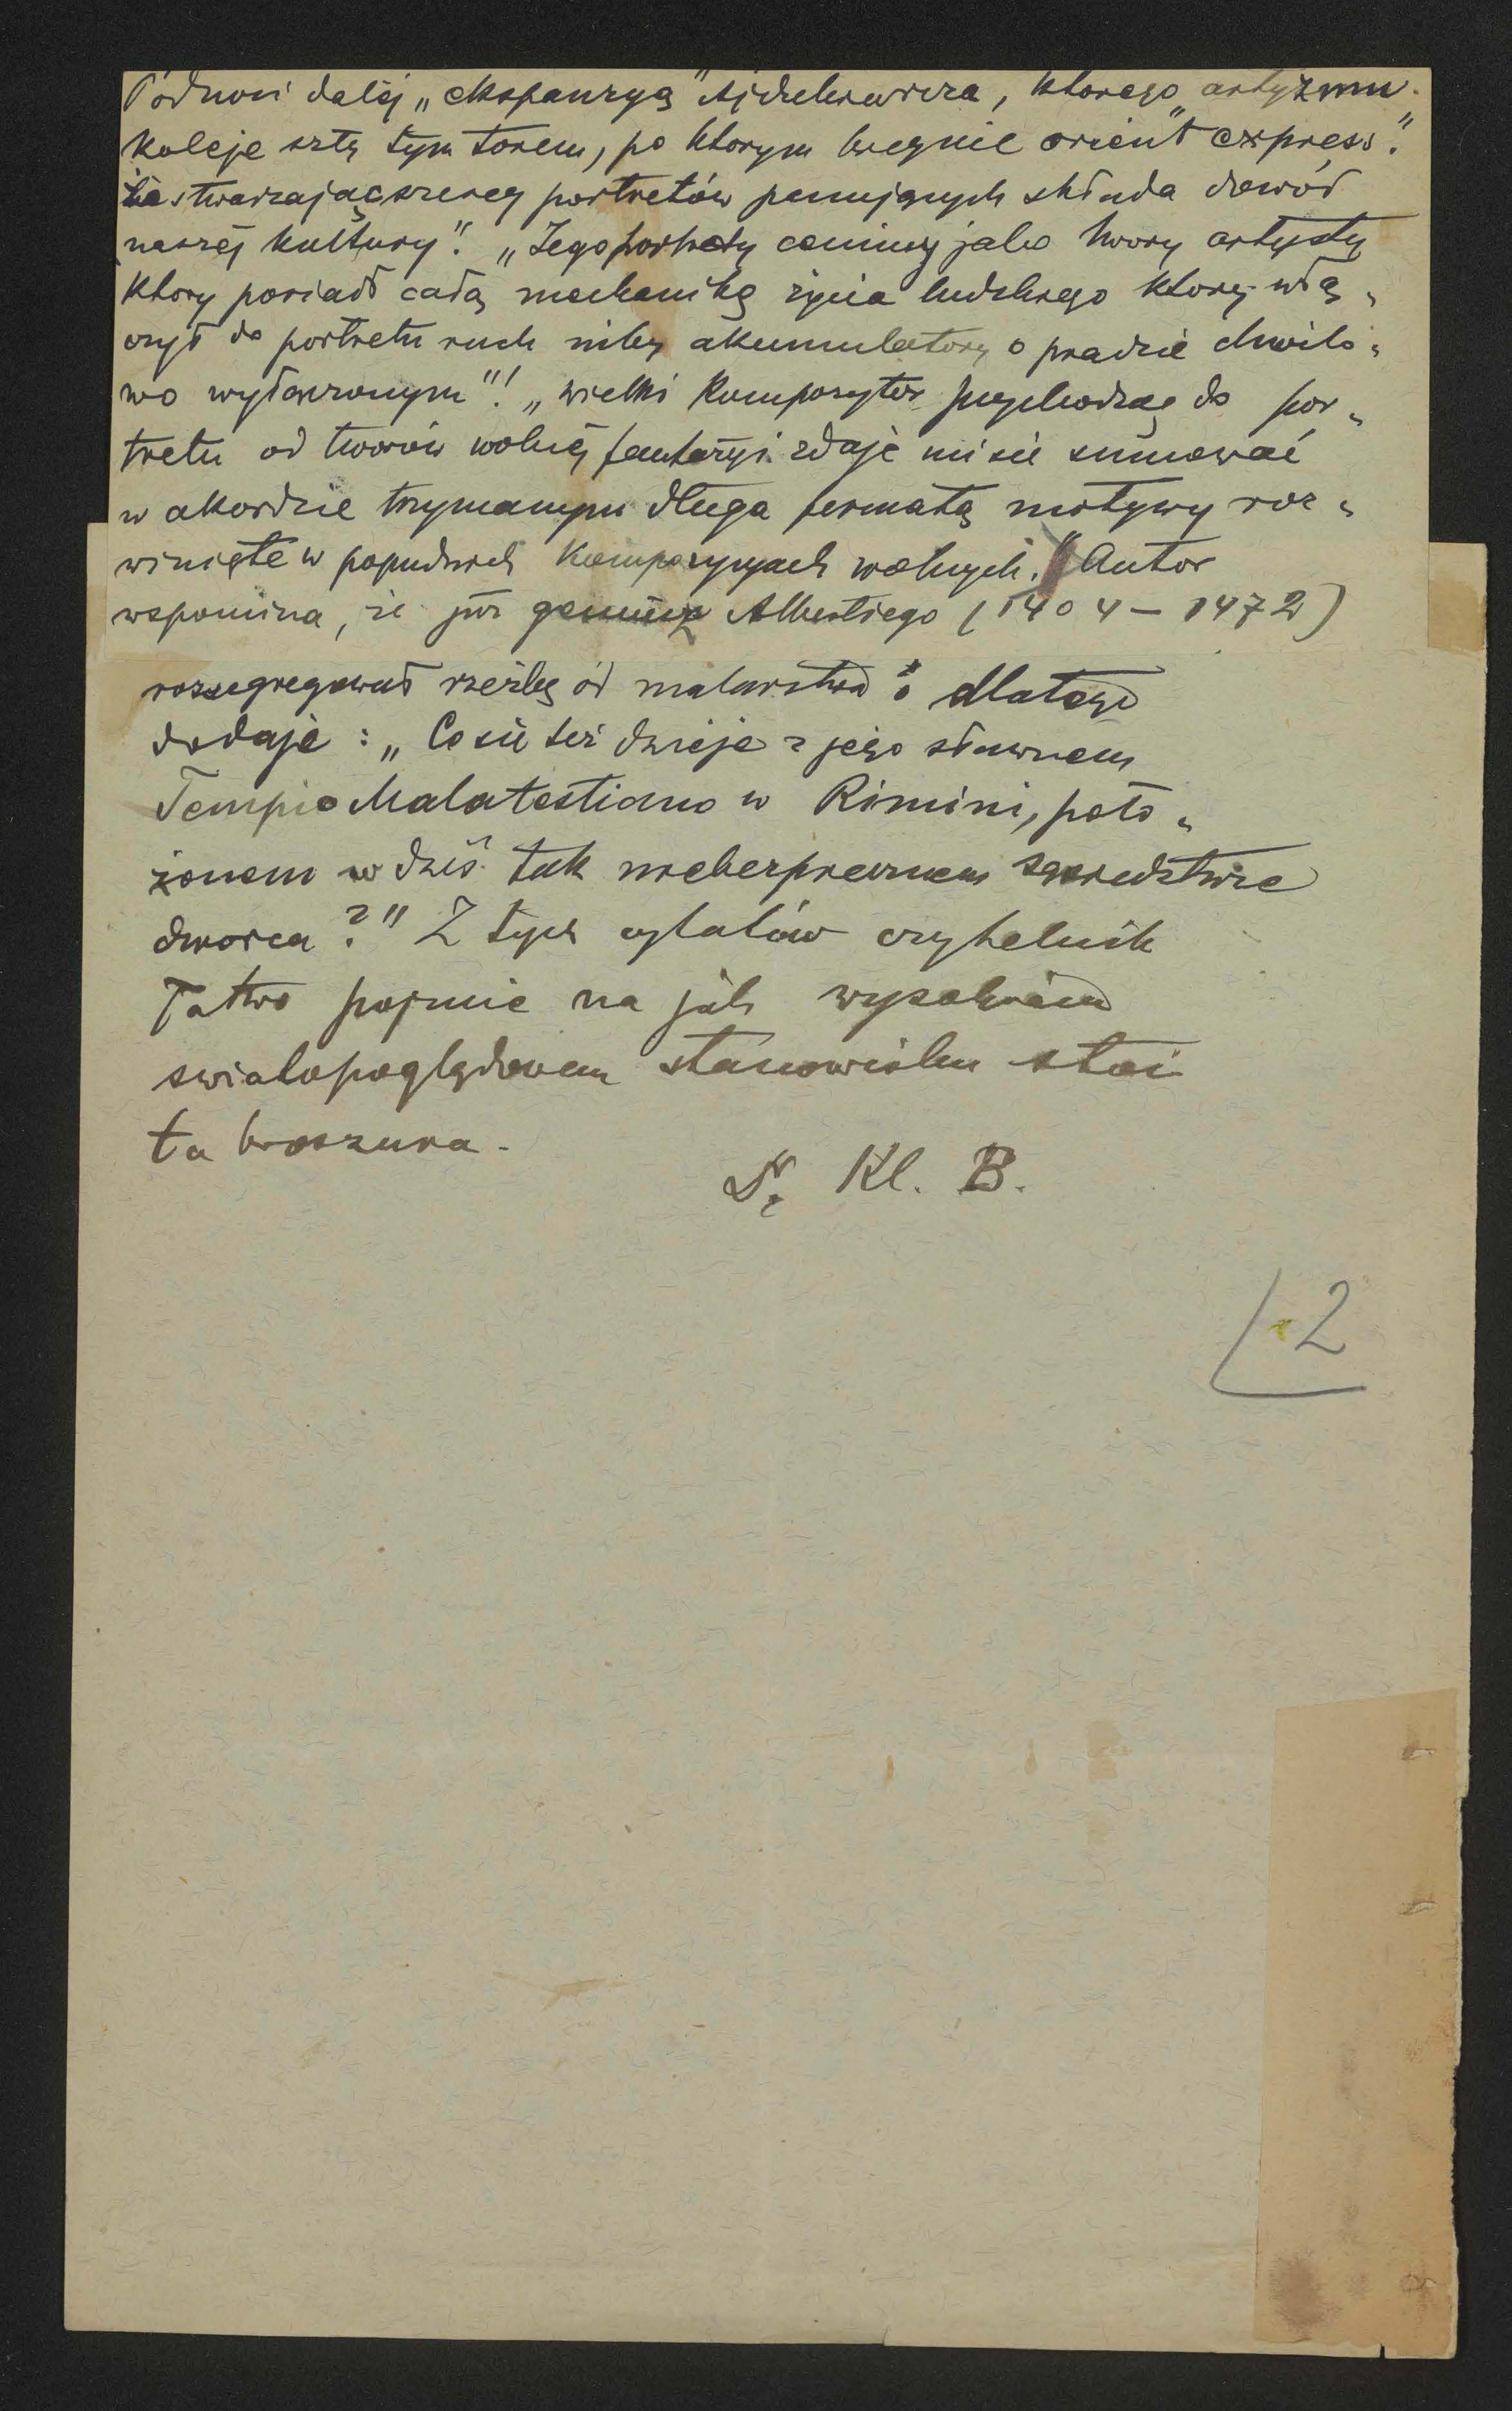 Podnosi dalej „ekspanzyą" Ajdukiewicza, ktorego „artyzmu
koleje szły tym torem, po ktorym biegnie orient express".
że stwarzając szereg portretów panujących składa dowód
naszéj kultury". „Jego portrety cenimy jako twory artysty
ktory posiadł całą mechanikę życia ludzkiego ktory włą„
czył do portretu ruch niby akumulatory o prądzie chwilo„
wo wyłączonym"! „Wielki kompozytor przychodząc do por„
tretu od tworów wolnéj fantazyi zdaje mi się sumować
w akordzie trzymanym długą fermatą motywy roz„
winięte w poprzednich kompozycyach wolnych." Autor
wspomina, że już geniusz Albertiego (1404 – 1472)
rozsegregował rzeźbę od malarstwa i dlatego
dodaje: „Co się też dzieje z jego sławnem
Tempio Malatestiano w Rimini, poło„
żonem w dziś tak niebezpiecznem sąsiedztwie
dworca?" Z tych cytatów czytelnik
łatwo pojmie na jak wysokiem
swiatopoglądowem stanowisku stoi
ta broszura.
Kl. B.
2